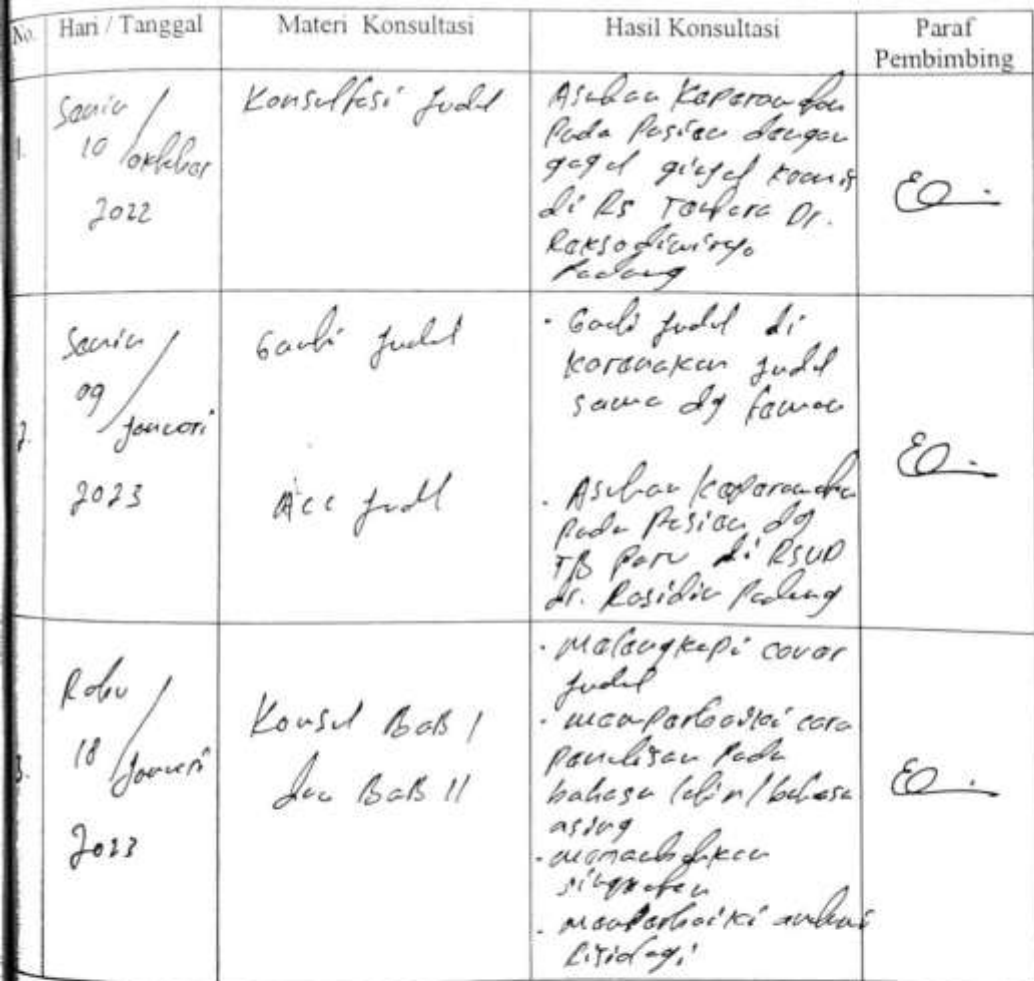 No. Hari / Tanggal Materi Konsultasi Hasil Konsultasi Paraf Pembimbing
1.
Senin /
10 / oktober
2022
Konsultasi Judul
Asuhan Keperawatan
Pada Pasien dengan
gagal ginjal kronis
di Rs Tentara Dr.
Reksodiwiryo
Padang
2.
Senin /
09 /
Januari
2023
Ganti Judul
Acc Judul
- Ganti Judul di
karenakan Judul
sama dg teman
- Asuhan keperawatan
Pada Pasien dg
TB Paru di RSUD
dr. Rasidin Padang
3.
Rabu /
18 / Januari
2023
Konsul BaB I
dan BaB II
- Melengkapi cover
Judul
- memperbaiki cara
penulisan Pada
bahasa latin/bahasa
asing
- menambahkan
singkatan
- memperbaiki